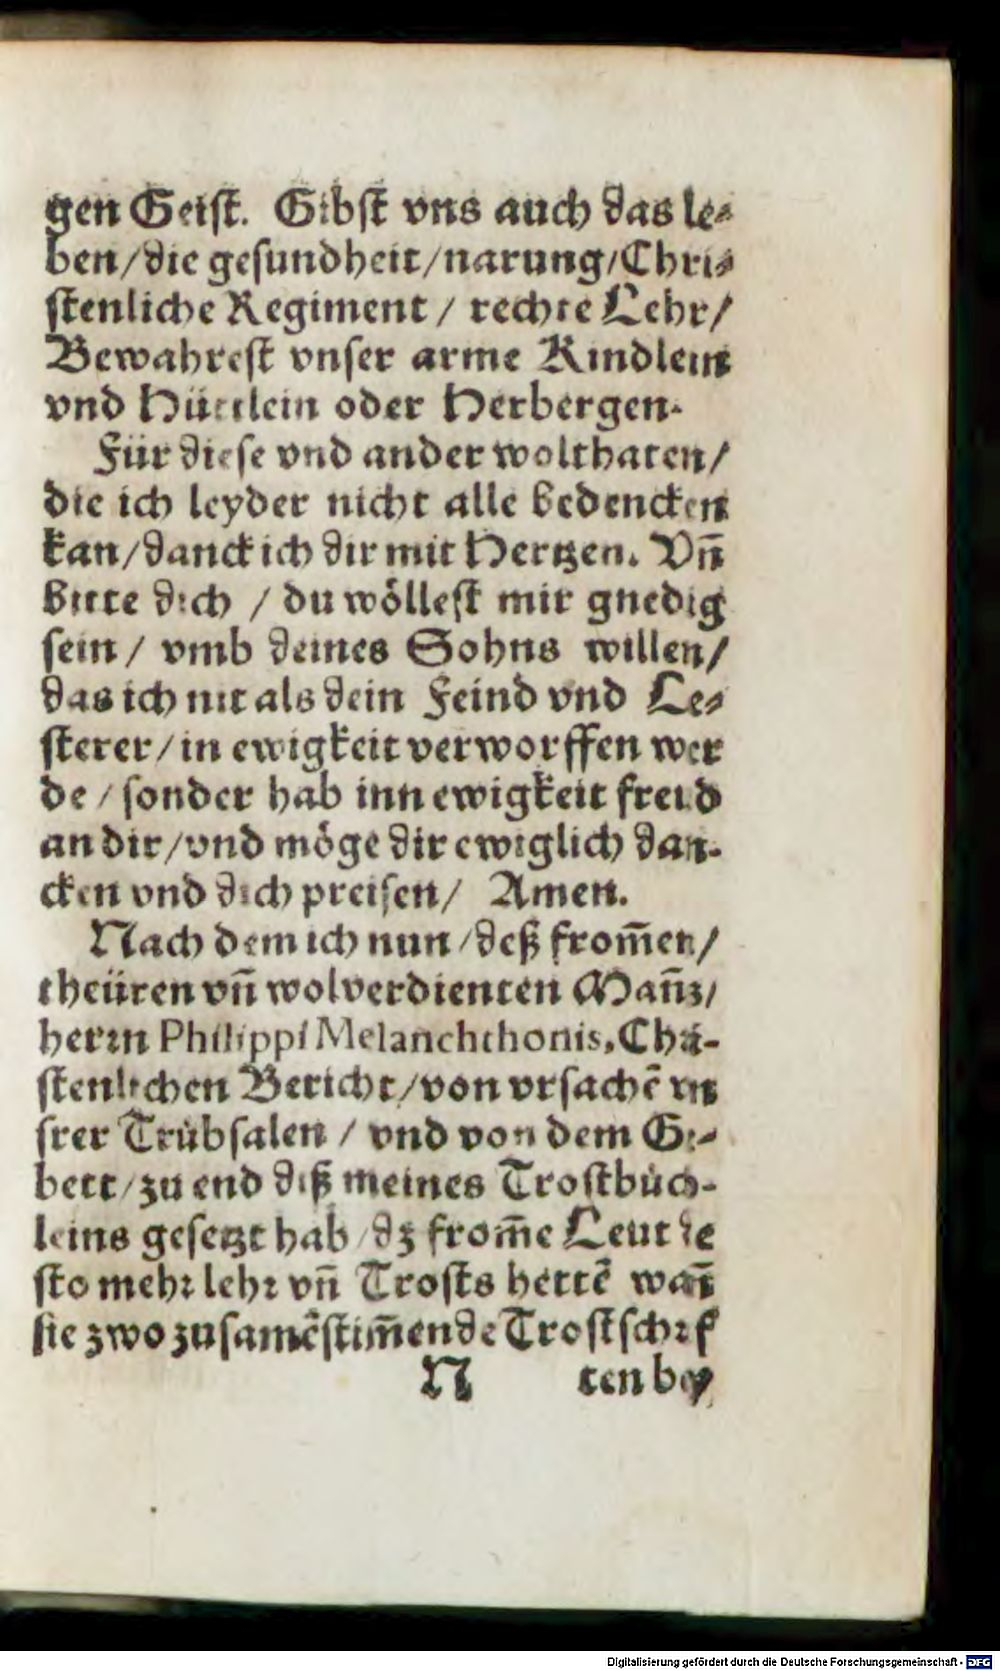 gen Geist. Gibst vns auch das le-
ben/die gesundheit/narung/Chri-
stenliche Regiment / rechte Lehr/
Bewahrest vnser arme Kindlein
vnd Hüttlein oder Herbergen.
Für diese vnd ander wolthaten/
die ich leyder nicht alle bedencken
kan/danck ich dir mit Hertzen. Vñ
bitte dich / du wöllest mir gnedig
sein / vmb deines Sohns willen/
das ich nit als dein Feind vnd Le-
sterer/in ewigkeit verworffen wer
de / sonder hab inn ewigkeit freud
an dir/vnd möge dir ewiglich dan-
cken vnd dich preisen/ Amen.
Nach dem ich nun/deß from̃en/
theüren vñ wolverdienten Mañs/
herrn Philippi Melanchthonis, Chri-
stenlichen Bericht/von vrsachẽ vn
srer Trübsalen / vnd von dem Ge-
bett/zu end diß meines Trostbüch-
leins gesetzt hab/dz from̃e Leut de
sto mehr lehr vñ Trosts hettẽ wañ
sie zwo zusamẽstim̃ende Trostschrif
N ten bey
Digitalisierung gefördert durch die Deutsche Forschungsgemeinschaft - DFG